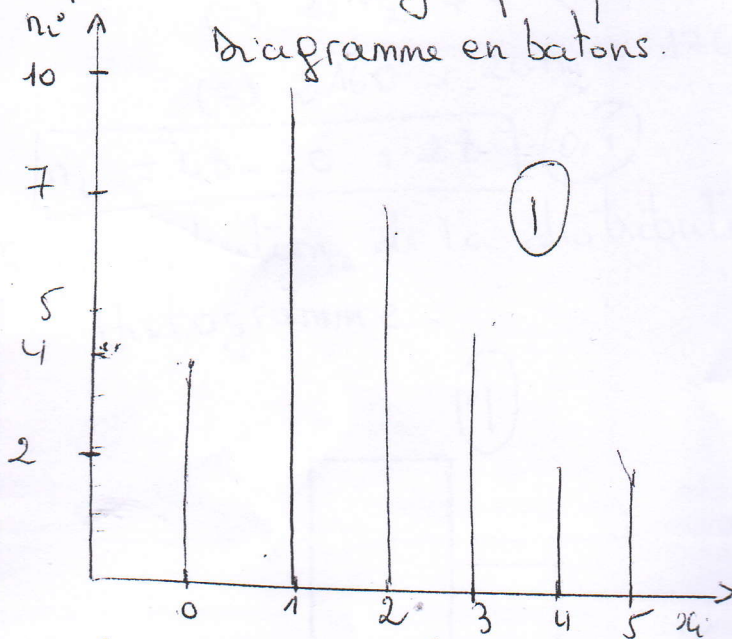 ni
Diagramme en batons.
10
7
1
5
4
2
0 1 2 3 4 5 xi
1